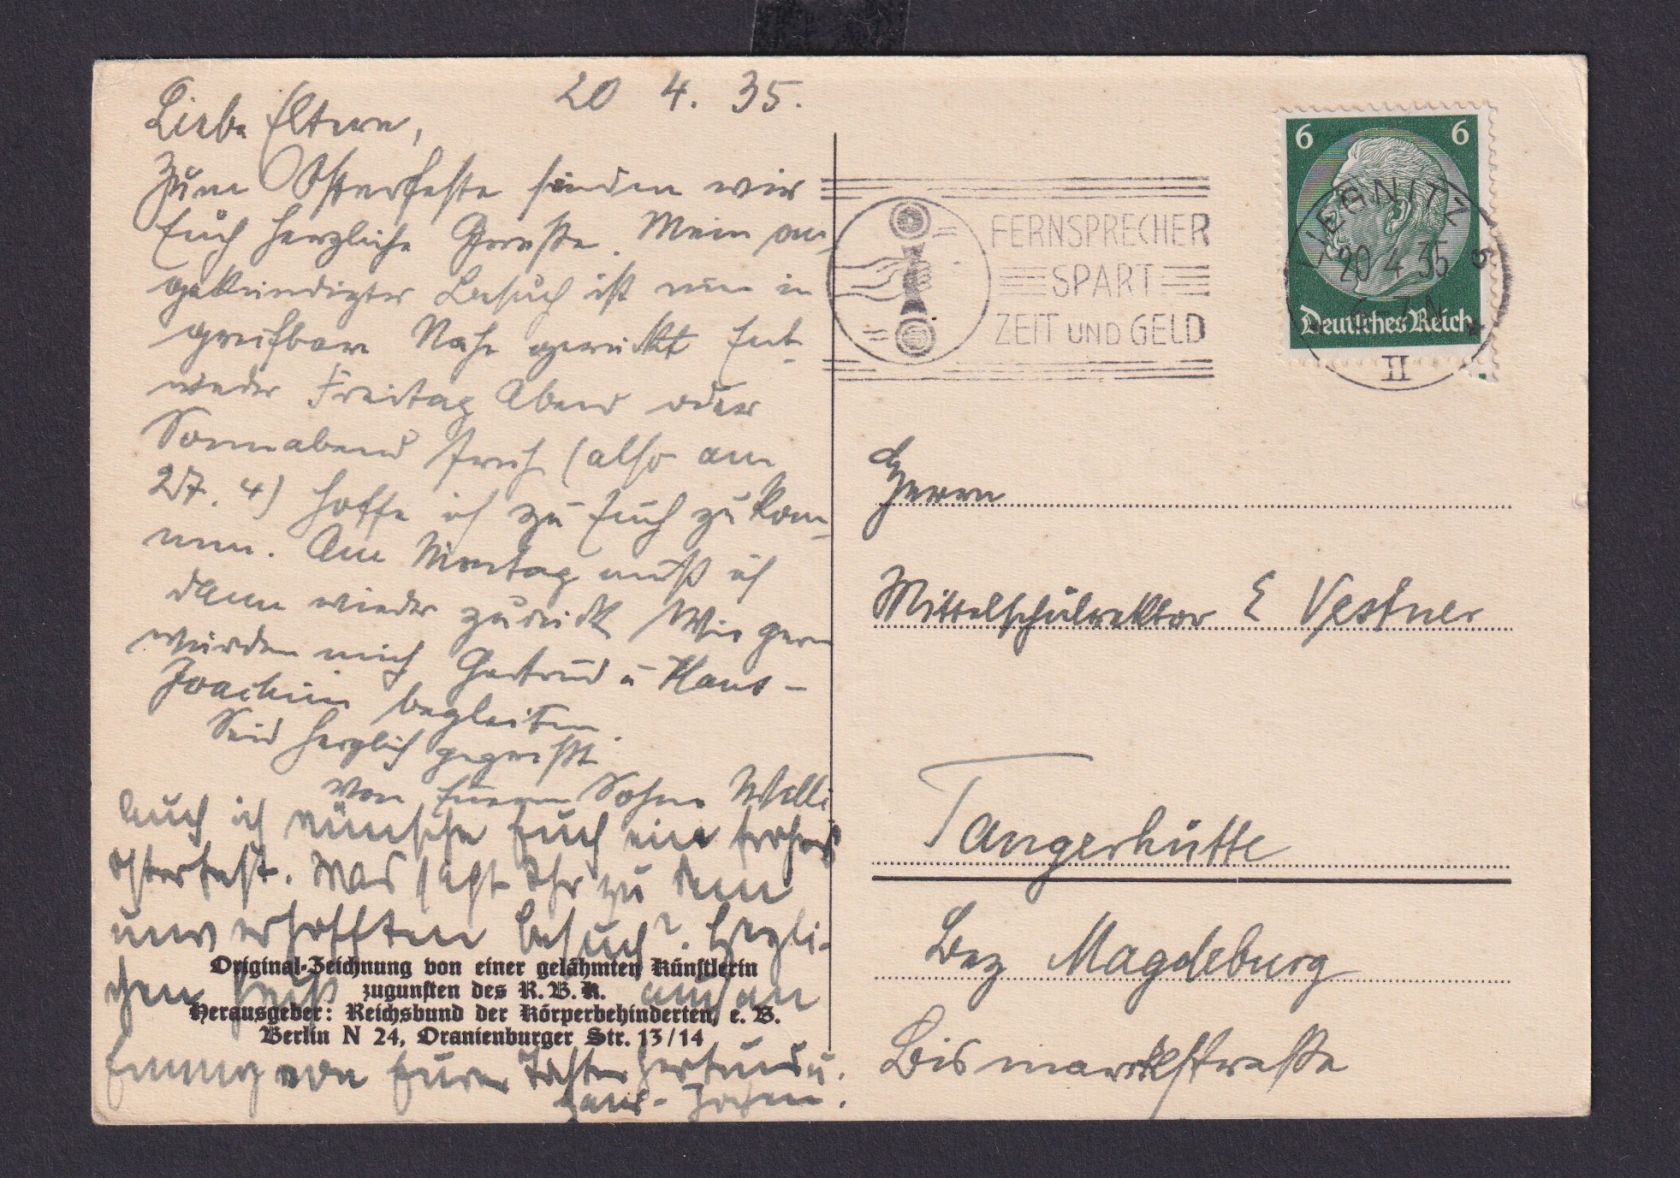 20 4. 35.
Liebe Eltern,
Zum Osterfeste senden wir
Euch herzliche Grüsse. Mein an
gekündigter Besuch ist nun in
greifbare Nähe gerückt Ent-
weder Freitag Abend oder
Sonnabend früh (also am
27. 4) hoffe ich zu Euch zu kom-
men. Am Montag muß ich
dann wieder zurück Wie gern
würden mich Gertrud u Hans-
Joachim begleiten.
Seid herzlich gegrüßt
von Eurem Sohne Willi
Auch ich wünsche Euch ein frohes
Osterfest. Was sagt Ihr zu dem
unverhofften Besuch? Herzli-
chen Gruß an
von Eurer Tochter Gertrud u.
Hans-Jochen.
Original-Zeichnung von einer gelähmten Künstlerin
zugunsten des R. B. K.
Herausgeber: Reichsbund der Körperbehinderten, e. V.
Berlin N 24, Oranienburger Str. 13/14
FERNSPRECHER
SPART
ZEIT UND GELD
6 6
Deutsches Reich
LIEGNITZ 5
20 4 35
II
Herrn
Mittelschulrektor E Vestner
Tangerhütte
Bez Magdeburg
Bismarckstraße